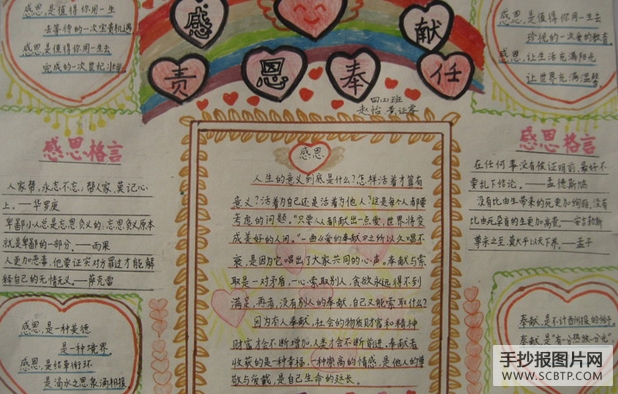 感恩,是值得你用一生
去等待的一次宝贵机遇
感恩是值得你用一去
完成的一次世纪壮举
感 献
责 恩 奉 任
四(4)班
感恩,是值得你用一生去
珍视的一次爱的教育
感恩,让生活充满阳光
让世界充满温馨
感恩格言
人家帮,永志不忘,帮人家,莫记心
上。——华罗庚
卑鄙小人总是忘恩负义的:忘恩负义原本
就是卑鄙的一部分。——雨果
人更加恶毒,他要证实对方罪过才能解
释自己的无情无义。——萨克雷
感恩
人生的意义到底是什么?怎样活着才算有
意义?活着为自己还是活着为他人?这是每个人都要
考虑的问题。“只要人人都献出一点爱,世界将变
成美好的人间。”一曲《爱的奉献》之所以久唱不
衰,是因为它唱出了大家共同的心声。奉献与索
取是一对矛盾,一心索取别人,贪欲永远得不到
满足,再者,没有别人的奉献,自己又能索取什么?
因为有人奉献,社会的物质财富和精神
财富才会不断增加,人类才会不断前进,奉献者
收获的是一种幸福,一种崇高的情感,是他人的尊
敬与爱戴,是自己生命的延长。
感恩格言
在任何事没有被证明前,最好不
要乱下结论。——孟德斯鸠
没有比由生带来的死更加绚丽,没有
比由死孕育的生更加高贵。
尊亲之至,莫大乎以天下养。——孟子
感恩,是一种美德
是一种境界
感恩,是结草衔环
是滴水之恩涌泉相报
奉献,是不计当回报的
奉献,是“有一分热,发一分光”
手抄报图片网
WWW.SCBTP.COM